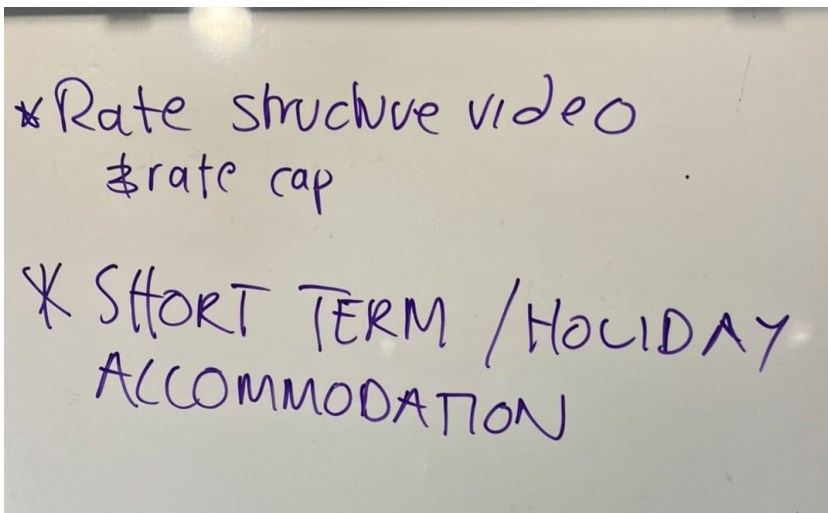 * Rate structure video
& rate cap
* SHORT TERM / HOLIDAY
ACCOMMODATION